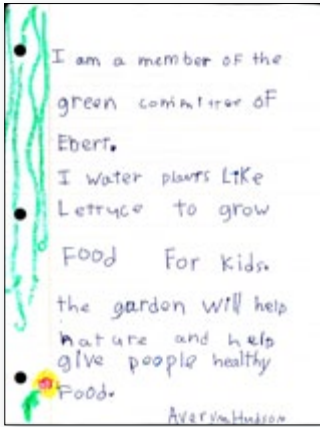 I am a member of the
green committee of
Ebert.
I water plants Like
Lettuce to grow
Food For Kids.
the garden will help
nature and help
give people healthy
Food.
Avery Hudson